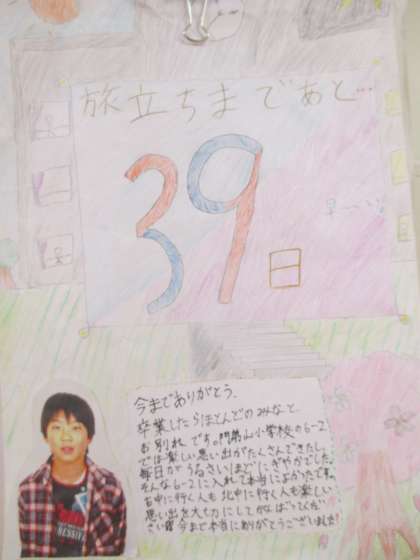 旅立ちまであと…
39日
早〜いな
今までありがとう。
卒業したらほとんどのみなと
お別れです。門第山小学校の6-2
では楽しい思い出がたくさんできたし、
毎日がうるさいほどにぎやかでした。
そんな6-2に入れて本当によかったです。
古中に行く人も北中に行く人も楽しい
思い出を大切にしてがんばってくだ
さい。今まで本当にありがとうございました!